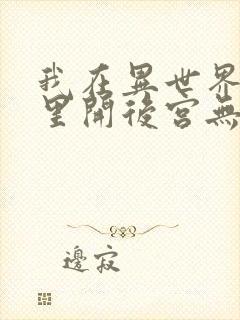 我在異世界
里開後宮無
邊寂